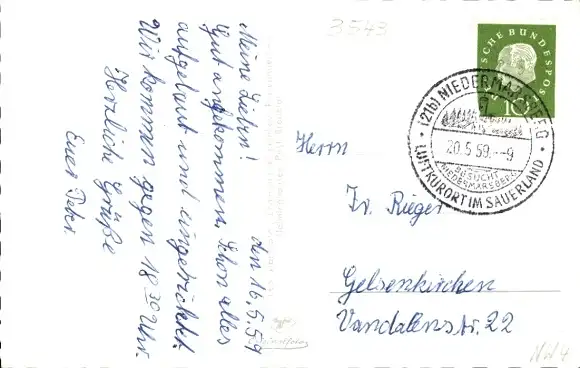 den 16.5.59
Meine Lieben!
Gut angekommen. Schon alles
aufgebaut und eingerichtet.
Wir kommen gegen 18.30 Uhr.
Herzliche Grüße
Euer Peter.
3543
DEUTSCHE BUNDESPOST
10
(21b) NIEDERMARSBERG
20.5.59.--9
BESUCHT
NIEDERMARSBERG
LUFTKURORT IM SAUERLAND
Herrn
Fr. Rieger
Gelsenkirchen
Vandalenstr. 22
NW 4